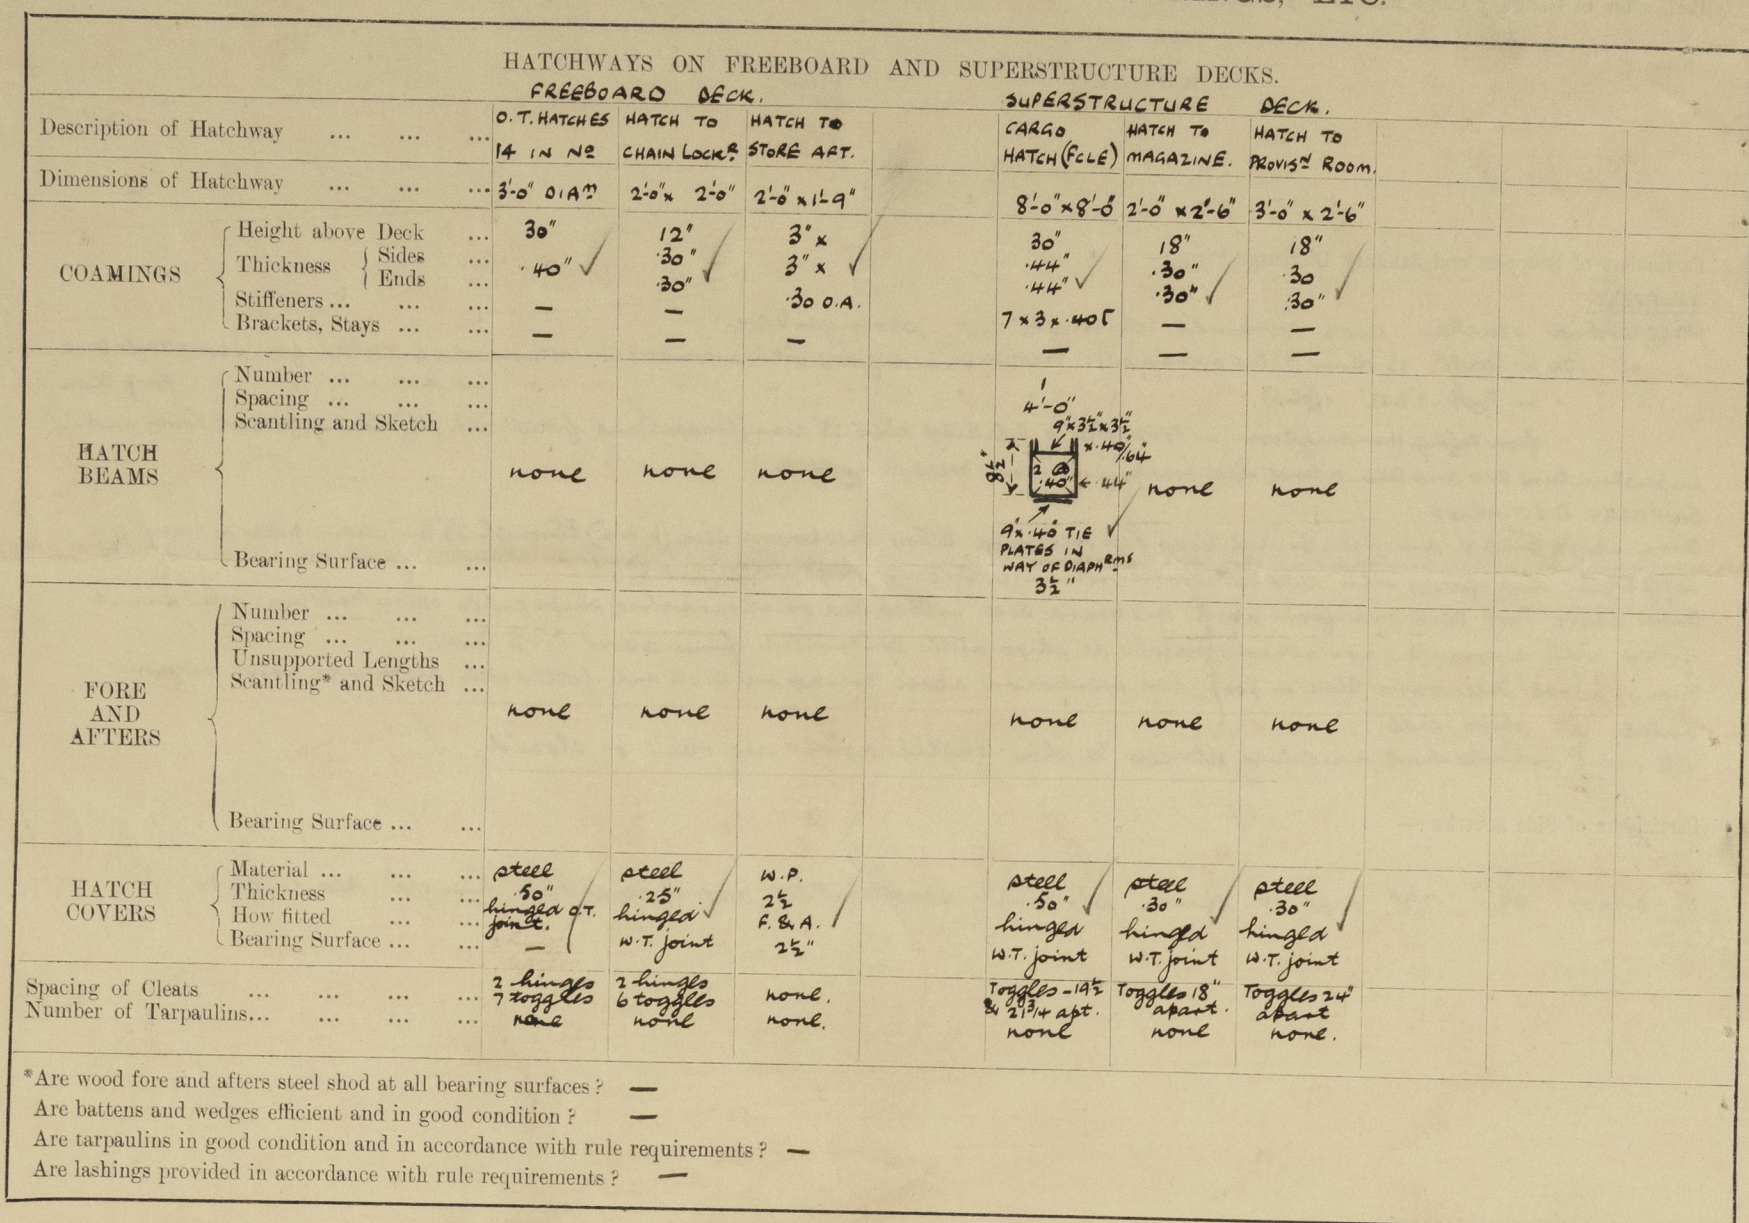 HATCHWAYS ON FREEBOARD AND SUPERSTRUCTURE DECKS.
FREEBOARD DECK. SUPERSTRUCTURE DECK.
Description of Hatchway ... ... ... O.T. HATCHES HATCH TO HATCH TO CARGO HATCH TO HATCH TO
14 IN Nº CHAIN LOCKR. STORE AFT. HATCH (FCLE) MAGAZINE. PROVISN ROOM.
Dimensions of Hatchway ... ... ... 3'-0" DIAM 2'-0" x 2'-0" 2'-0" x 1'-9" 8'-0" x 8'-0" 2'-0" x 2'-6" 3'-0" x 2'-6"
COAMINGS
Height above Deck ... 30" 12" 3" x 30" 18" 18"
Thickness { Sides ... .40" ✓ .30" ✓ 3" x ✓ .44" ✓ .30" ✓ .30 ✓
Ends ... .30" .30 O.A. .44" .30" .30"
Stiffeners ... ... ... — — 7 x 3 x .40 [ — —
Brackets, Stays ... ... — — — — — —
HATCH
BEAMS
Number ... ... ... 1
Spacing ... ... ... 4'-0"
Scantling and Sketch ... 9" x 3½" x 3½"
x .40"/.64"
8½"
2 @
.40" .44"
none none none none none
9" x .40" TIE ✓
PLATES IN
WAY OF DIAPHRMS
Bearing Surface ... ... 3½"
FORE
AND
AFTERS
Number ... ... ...
Spacing ... ... ...
Unsupported Lengths ...
Scantling* and Sketch ...
none none none none none none
Bearing Surface ... ...
HATCH
COVERS
Material ... ... ... steel steel W.P. steel steel steel
Thickness ... ... .50" .25" 2½ .50" .30" .30"
How fitted ... ... hinged O.T. joint. hinged F. & A. hinged hinged hinged
Bearing Surface ... ... — W.T. joint 2½" W.T. joint W.T. joint W.T. joint
Spacing of Cleats ... ... ... ... 2 hinges 7 toggles 2 hinges 6 toggles none. Toggles - 19½ & 21¾ apt. Toggles 18" apart. Toggles 24" apart
Number of Tarpaulins ... ... ... ... none none none. none none none.
*Are wood fore and afters steel shod at all bearing surfaces? —
Are battens and wedges efficient and in good condition? —
Are tarpaulins in good condition and in accordance with rule requirements? —
Are lashings provided in accordance with rule requirements? —